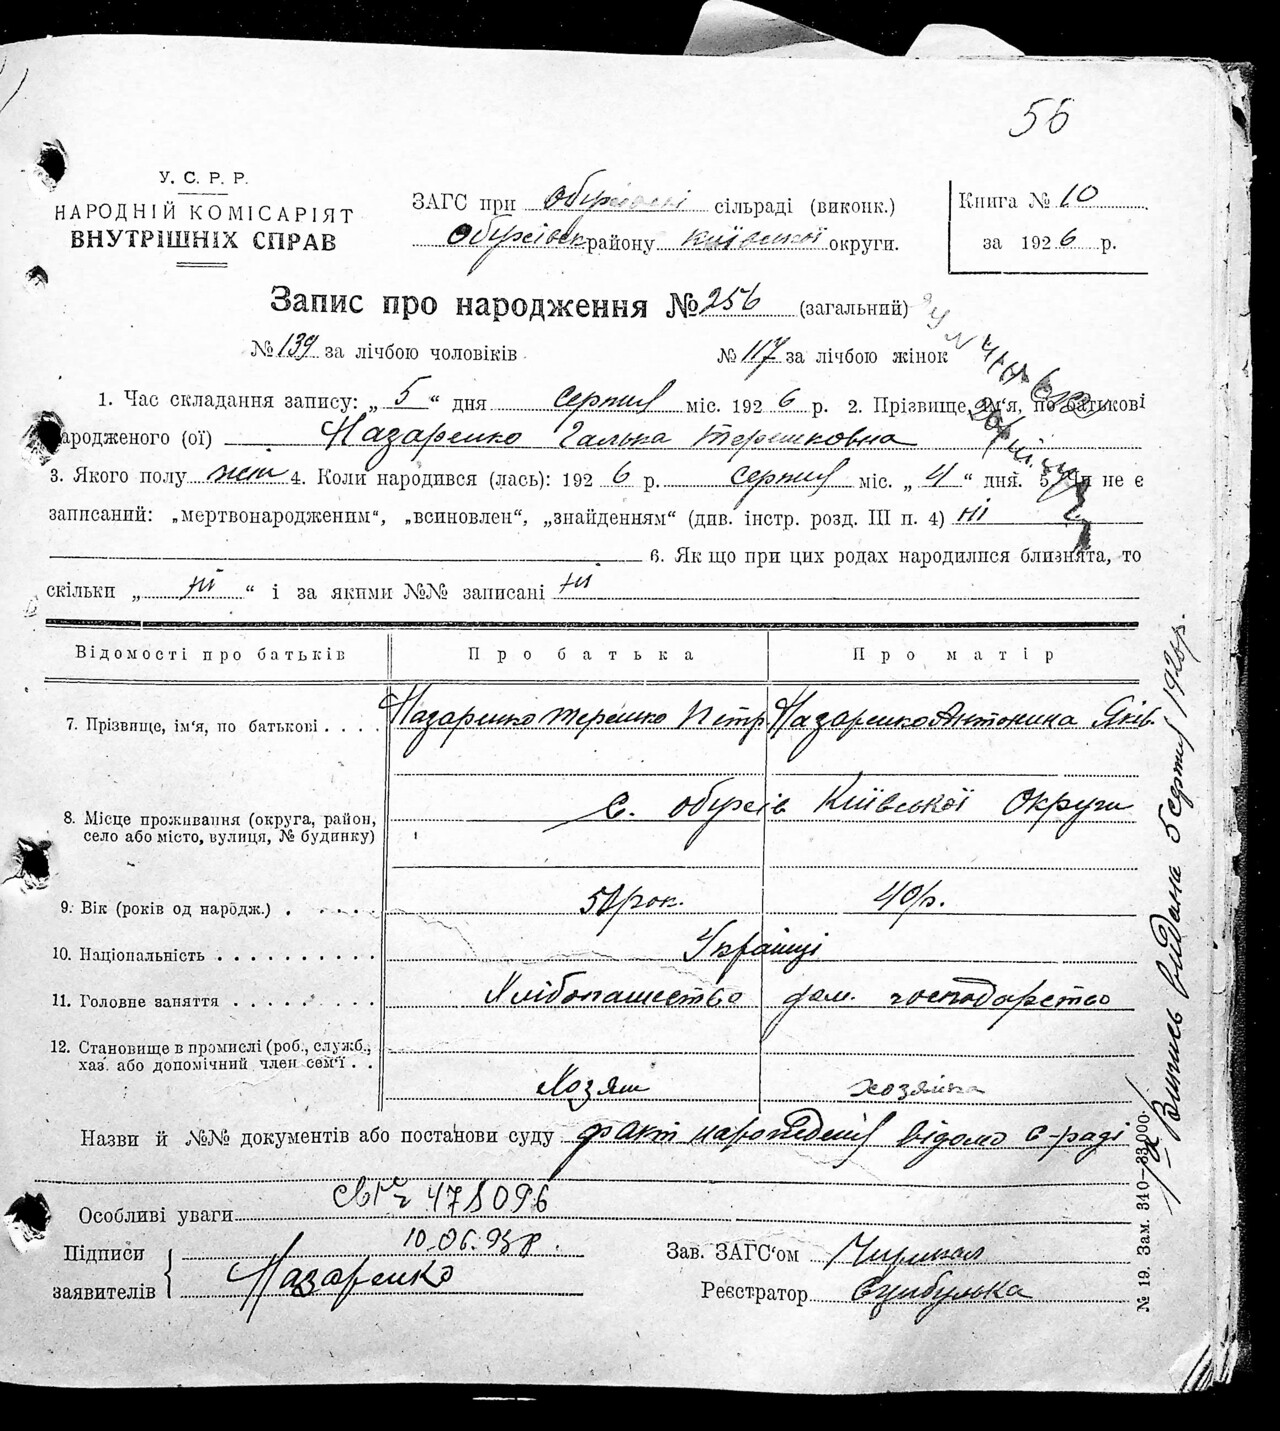 56
У. С. Р. Р.
НАРОДНІЙ КОМІСАРІЯТ
ВНУТРІШНІХ СПРАВ
ЗАГС при сільраді (виконк.)
району Київської округи.
Книга № 10
за 1926 р.
Запис про народження № 256 (загальний)
№ 139 за лічбою чоловіків № 117 за лічбою жінок
1. Час складання запису: „ 5 “ дня серпня міс. 1926 р. 2. Прізвище, ім'я, по батькові
народженого (ої) Назаренко Галька Терешковна
3. Якого полу жін 4. Коли народився (лась): 1926 р. серпня міс. „ 4 “ дня. 5. Чи не є
записаний: „мертвонародженим“, „всиновлен“, „знайденням“ (див. інстр. розд. III п. 4) ні
6. Як що при цих родах народилися близнята, то
скільки „ ні “ і за якими №№ записані ні
Відомості про батьків Про батька Про матір
7. Прізвище, ім'я, по батькові . . . . Назаренко Терешко Петр. Назаренко Антонина Яків.
8. Місце проживання (округа, район,
село або місто, вулиця, № будинку)
с. Обухів Київської Округи
9. Вік (років од народж.) . . . . . рок. 40 р.
10. Національність . . . . . . . . . . Українці
11. Головне заняття . . . . . . . . Хлібопашество дом. господарство
12. Становище в промислі (роб., служб.,
хаз. або допомічний член сем'ї . .
Хозяин хозяйка
Назви й №№ документів або постанови суду факт народження відомо с-раді
Особливі уваги
10.06.
Підписи
заявителів
Назаренко
Зав. ЗАГС'ом
Реєстратор Сцибулька
№ 19. Зам. 340—33.000.
Випись видана 5 серпня 1926 р.